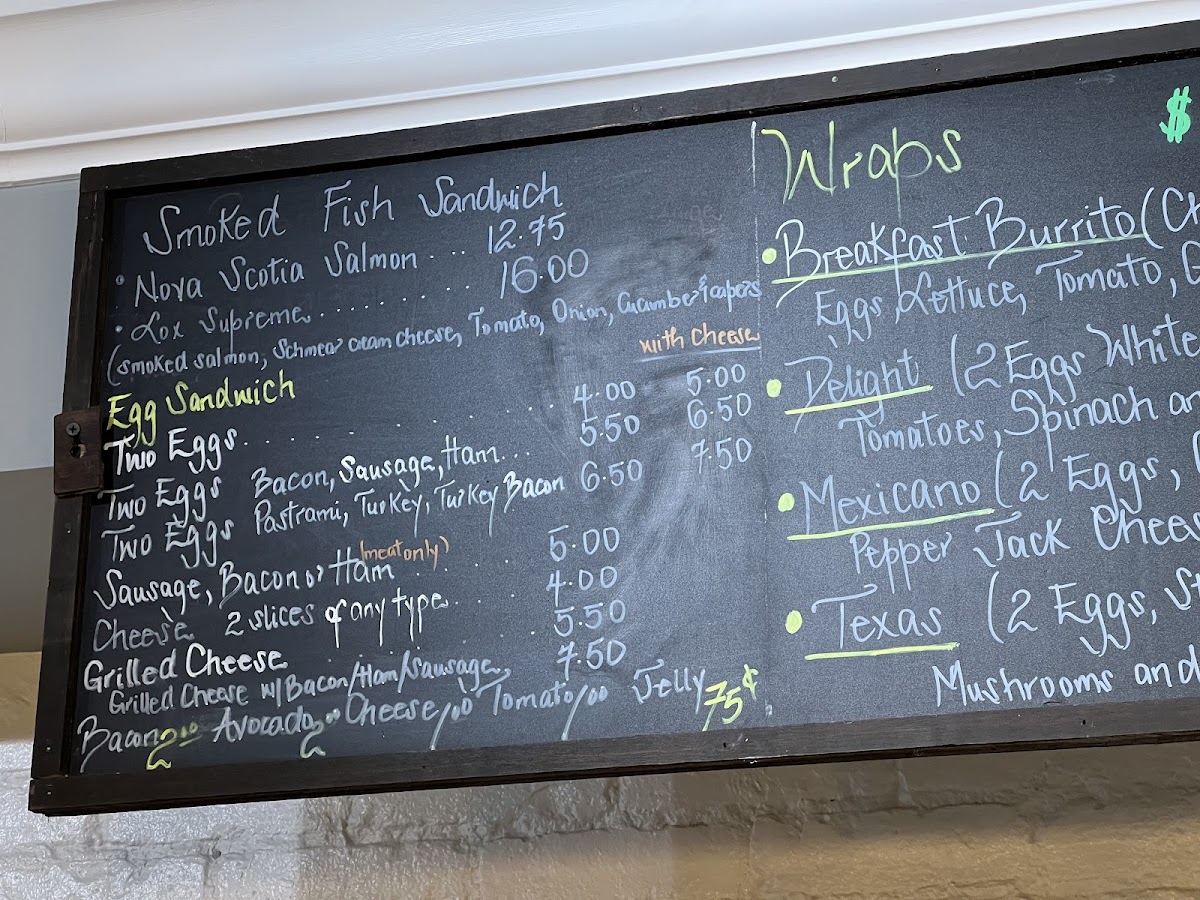 Smoked Fish Sandwich
• Nova Scotia Salmon ... 12.75
• Lox Supreme ......... 16.00
(smoked salmon, Schmear cream cheese, Tomato, Onion, Cucumber & capers
with cheese
Egg Sandwich
Two Eggs ............ 4.00 5.00
Two Eggs Bacon, Sausage, Ham... 5.50 6.50
Two Eggs Pastrami, Turkey, Turkey Bacon 6.50 7.50
Sausage, Bacon or Ham (meat only) .... 5.00
Cheese 2 slices of any type..... 4.00
Grilled Cheese ........ 5.50
Grilled Cheese w/Bacon/Ham/Sausage, 7.50
Bacon 2.00 Avocado 2.00 Cheese 1.00 Tomato 1.00 Jelly 75¢
Wraps $
• Breakfast Burrito (Ch
Eggs, Lettuce, Tomato, G
• Delight (2 Eggs White
Tomatoes, Spinach an
• Mexicano (2 Eggs,
Pepper Jack Chees
• Texas (2 Eggs, St
Mushrooms and